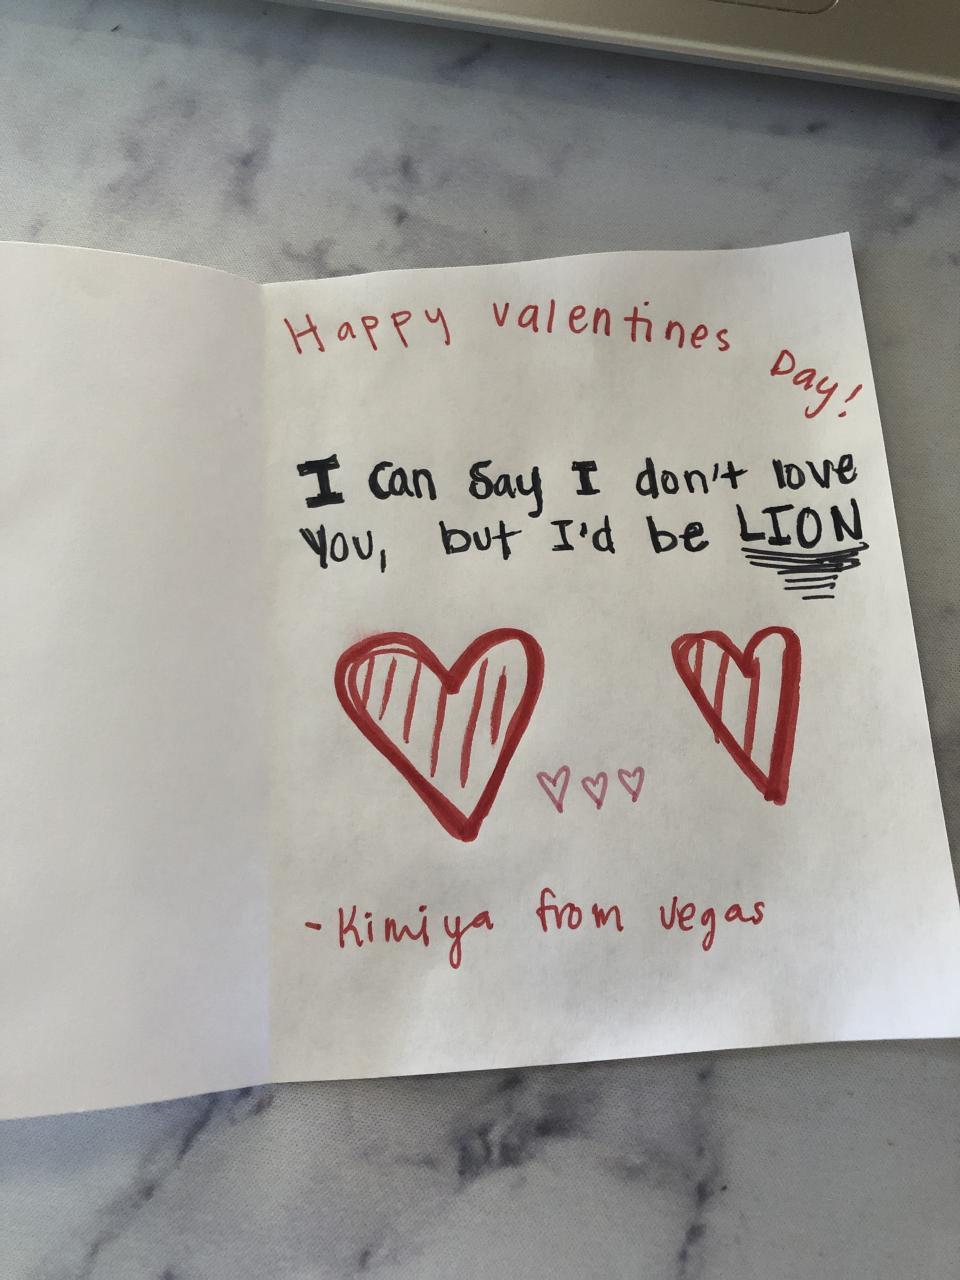 Happy valentines Day!
I can say I don't love
you, but I'd be LION
-Kimiya from vegas